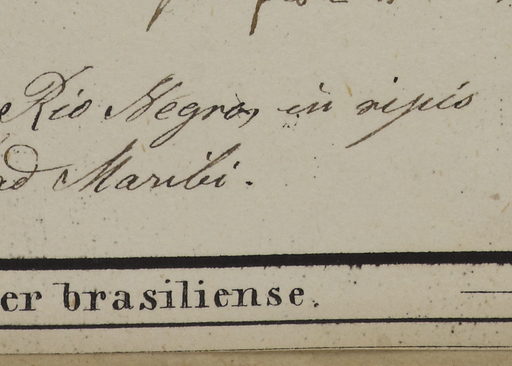 Rio Negro, in ripis
ad Maribi.
er brasiliense.